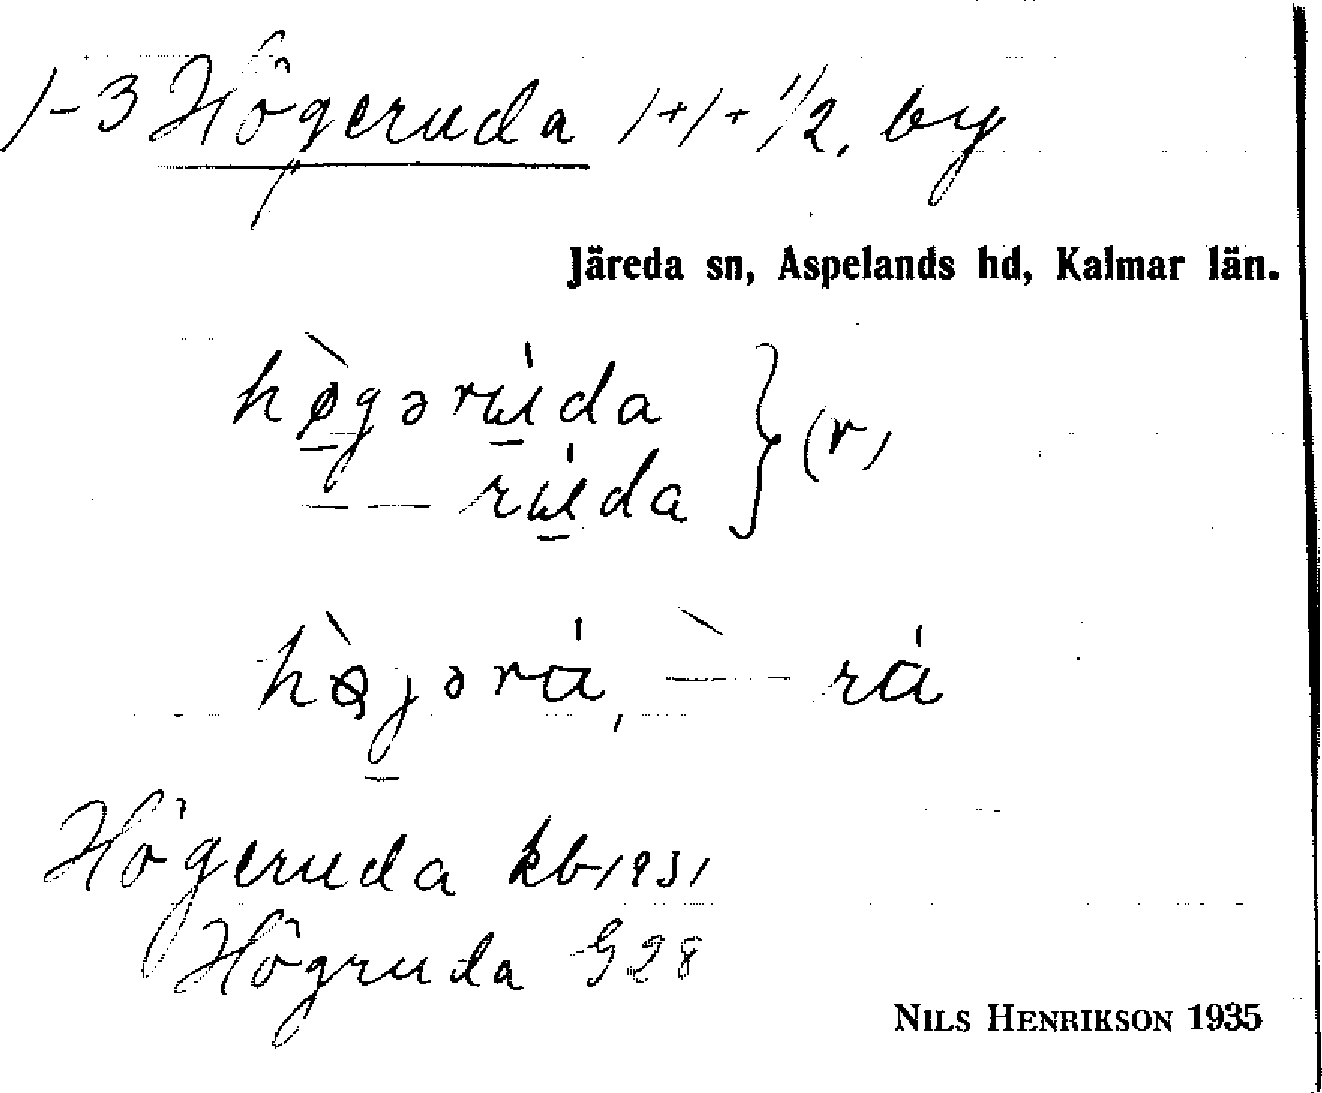 1-3 Högeruda 1+1+1/2, by
Järeda sn, Aspelands hd, Kalmar län.
hø̀gərúda } (r)
— — rúda
hø̀gərá, —̀ — rá
Högeruda kb 1931
Högruda G 28
NILS HENRIKSON 1935